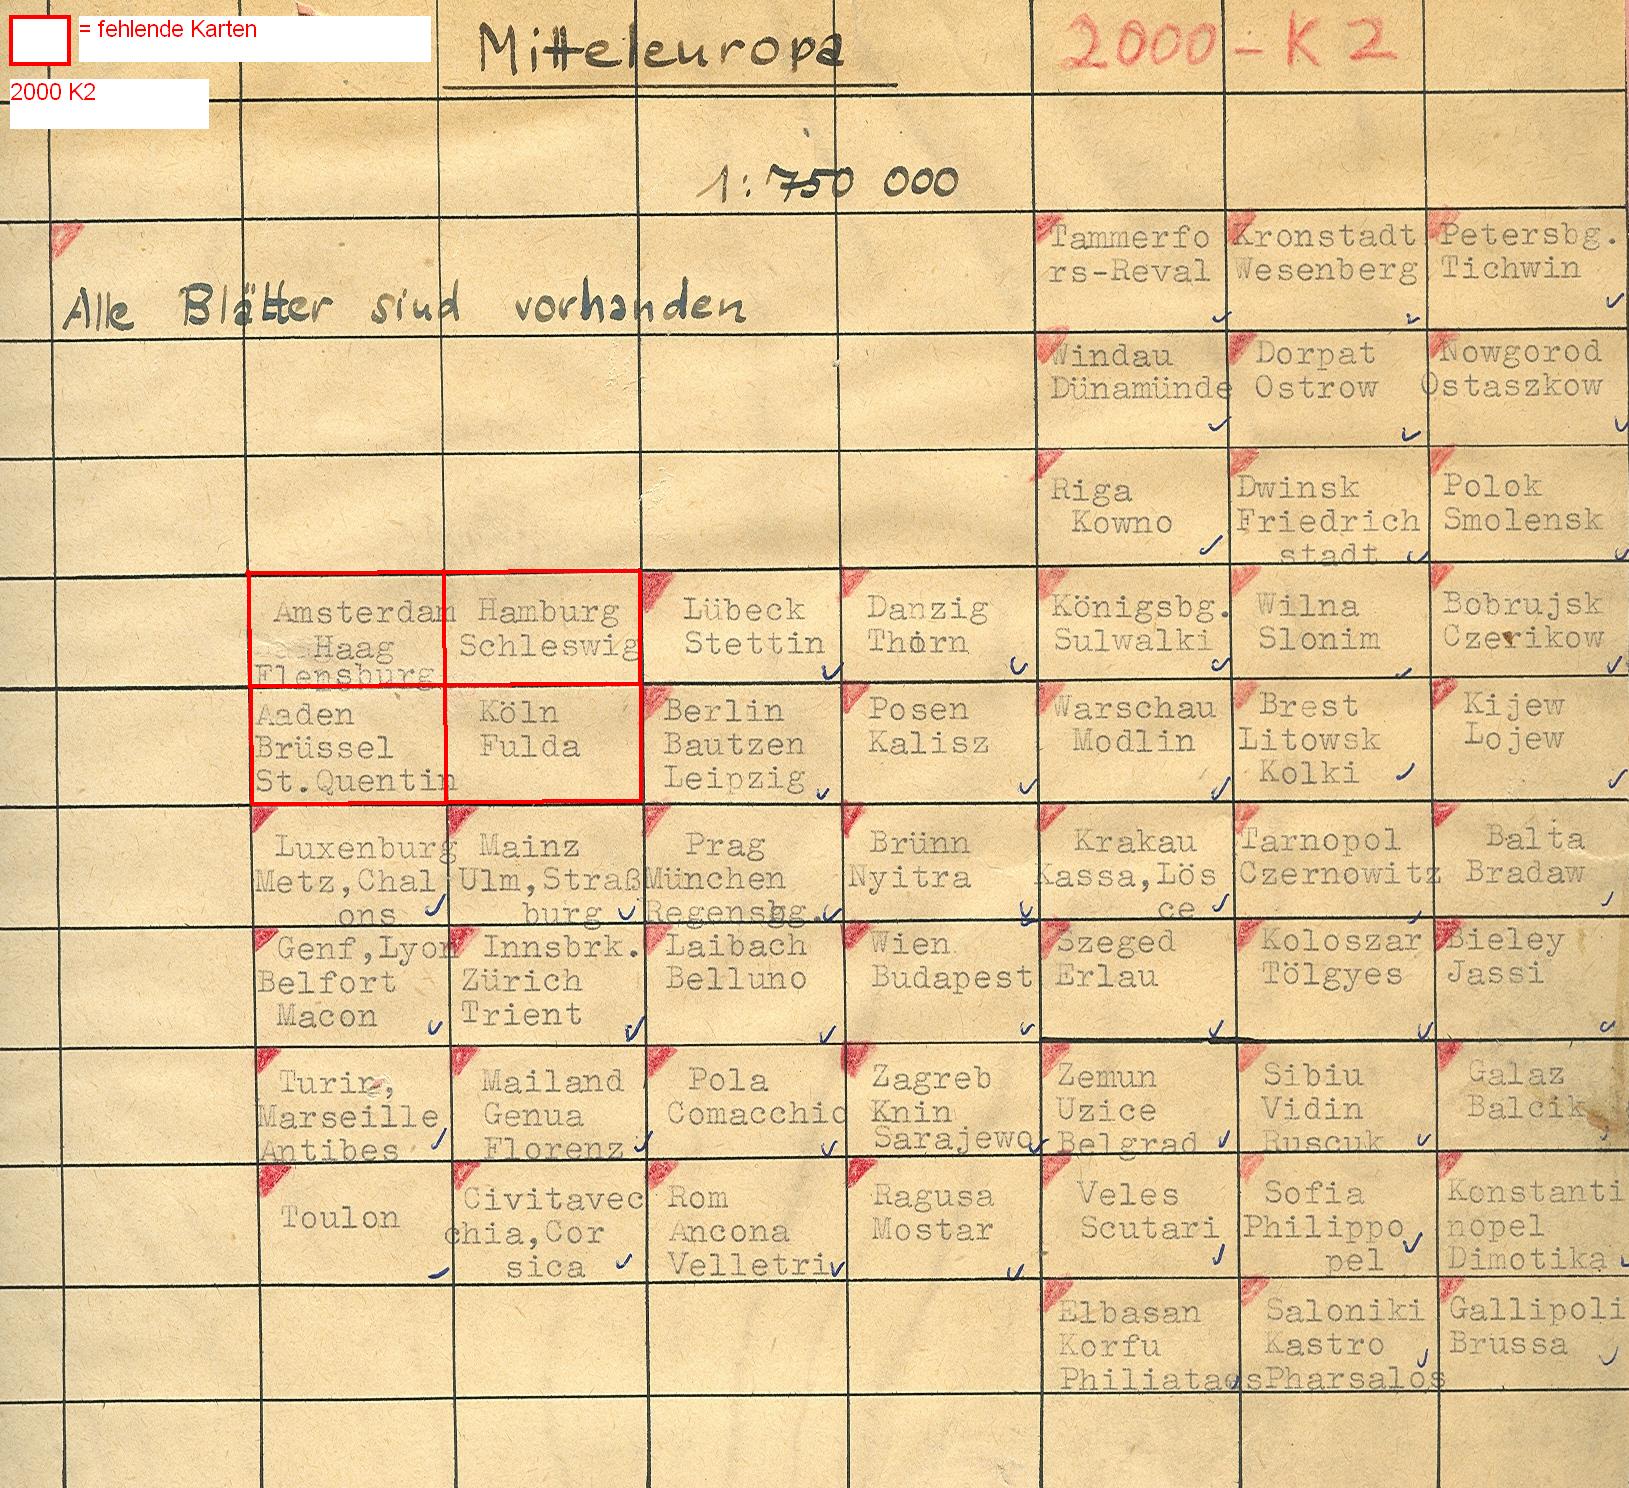 = fehlende Karten
2000 K2
Mitteleuropa
2000 - K 2
1:750 000
Alle Blätter sind vorhanden
Tammerfo
rs-Reval
Kronstadt
Wesenberg
Petersbg.
Tichwin
Windau
Dünamünde
Dorpat
Ostrow
Nowgorod
Ostaszkow
Riga
Kowno
Dwinsk
Friedrich
stadt
Polok
Smolensk
Amsterdam
Haag
Flensburg
Hamburg
Schleswig
Lübeck
Stettin
Danzig
Thorn
Königsbg.
Sulwalki
Wilna
Slonim
Bobrujsk
Czerikow
Aaden
Brüssel
St.Quentin
Köln
Fulda
Berlin
Bautzen
Leipzig
Posen
Kalisz
Warschau
Modlin
Brest
Litowsk
Kolki
Kijew
Lojew
Luxenburg
Metz,Chal
ons
Mainz
Ulm,Straß
burg
Prag
München
Regensbg.
Brünn
Nyitra
Krakau
Kassa,Lös
ce
Tarnopol
Czernowitz
Balta
Bradaw
Genf,Lyon
Belfort
Macon
Innsbrk.
Zürich
Trient
Laibach
Belluno
Wien
Budapest
Szeged
Erlau
Koloszar
Tölgyes
Bieley
Jassi
Turin,
Marseille
Antibes
Mailand
Genua
Florenz
Pola
Comacchio
Zagreb
Knin
Sarajewo
Zemun
Uzice
Belgrad
Sibiu
Vidin
Ruscuk
Galaz
Balcik
Toulon
Civitavec
chia,Cor
sica
Rom
Ancona
Velletri
Ragusa
Mostar
Veles
Scutari
Sofia
Philippo
pel
Konstanti
nopel
Dimotika
Elbasan
Korfu
Philiataes
Saloniki
Kastro
Pharsalos
Gallipoli
Brussa